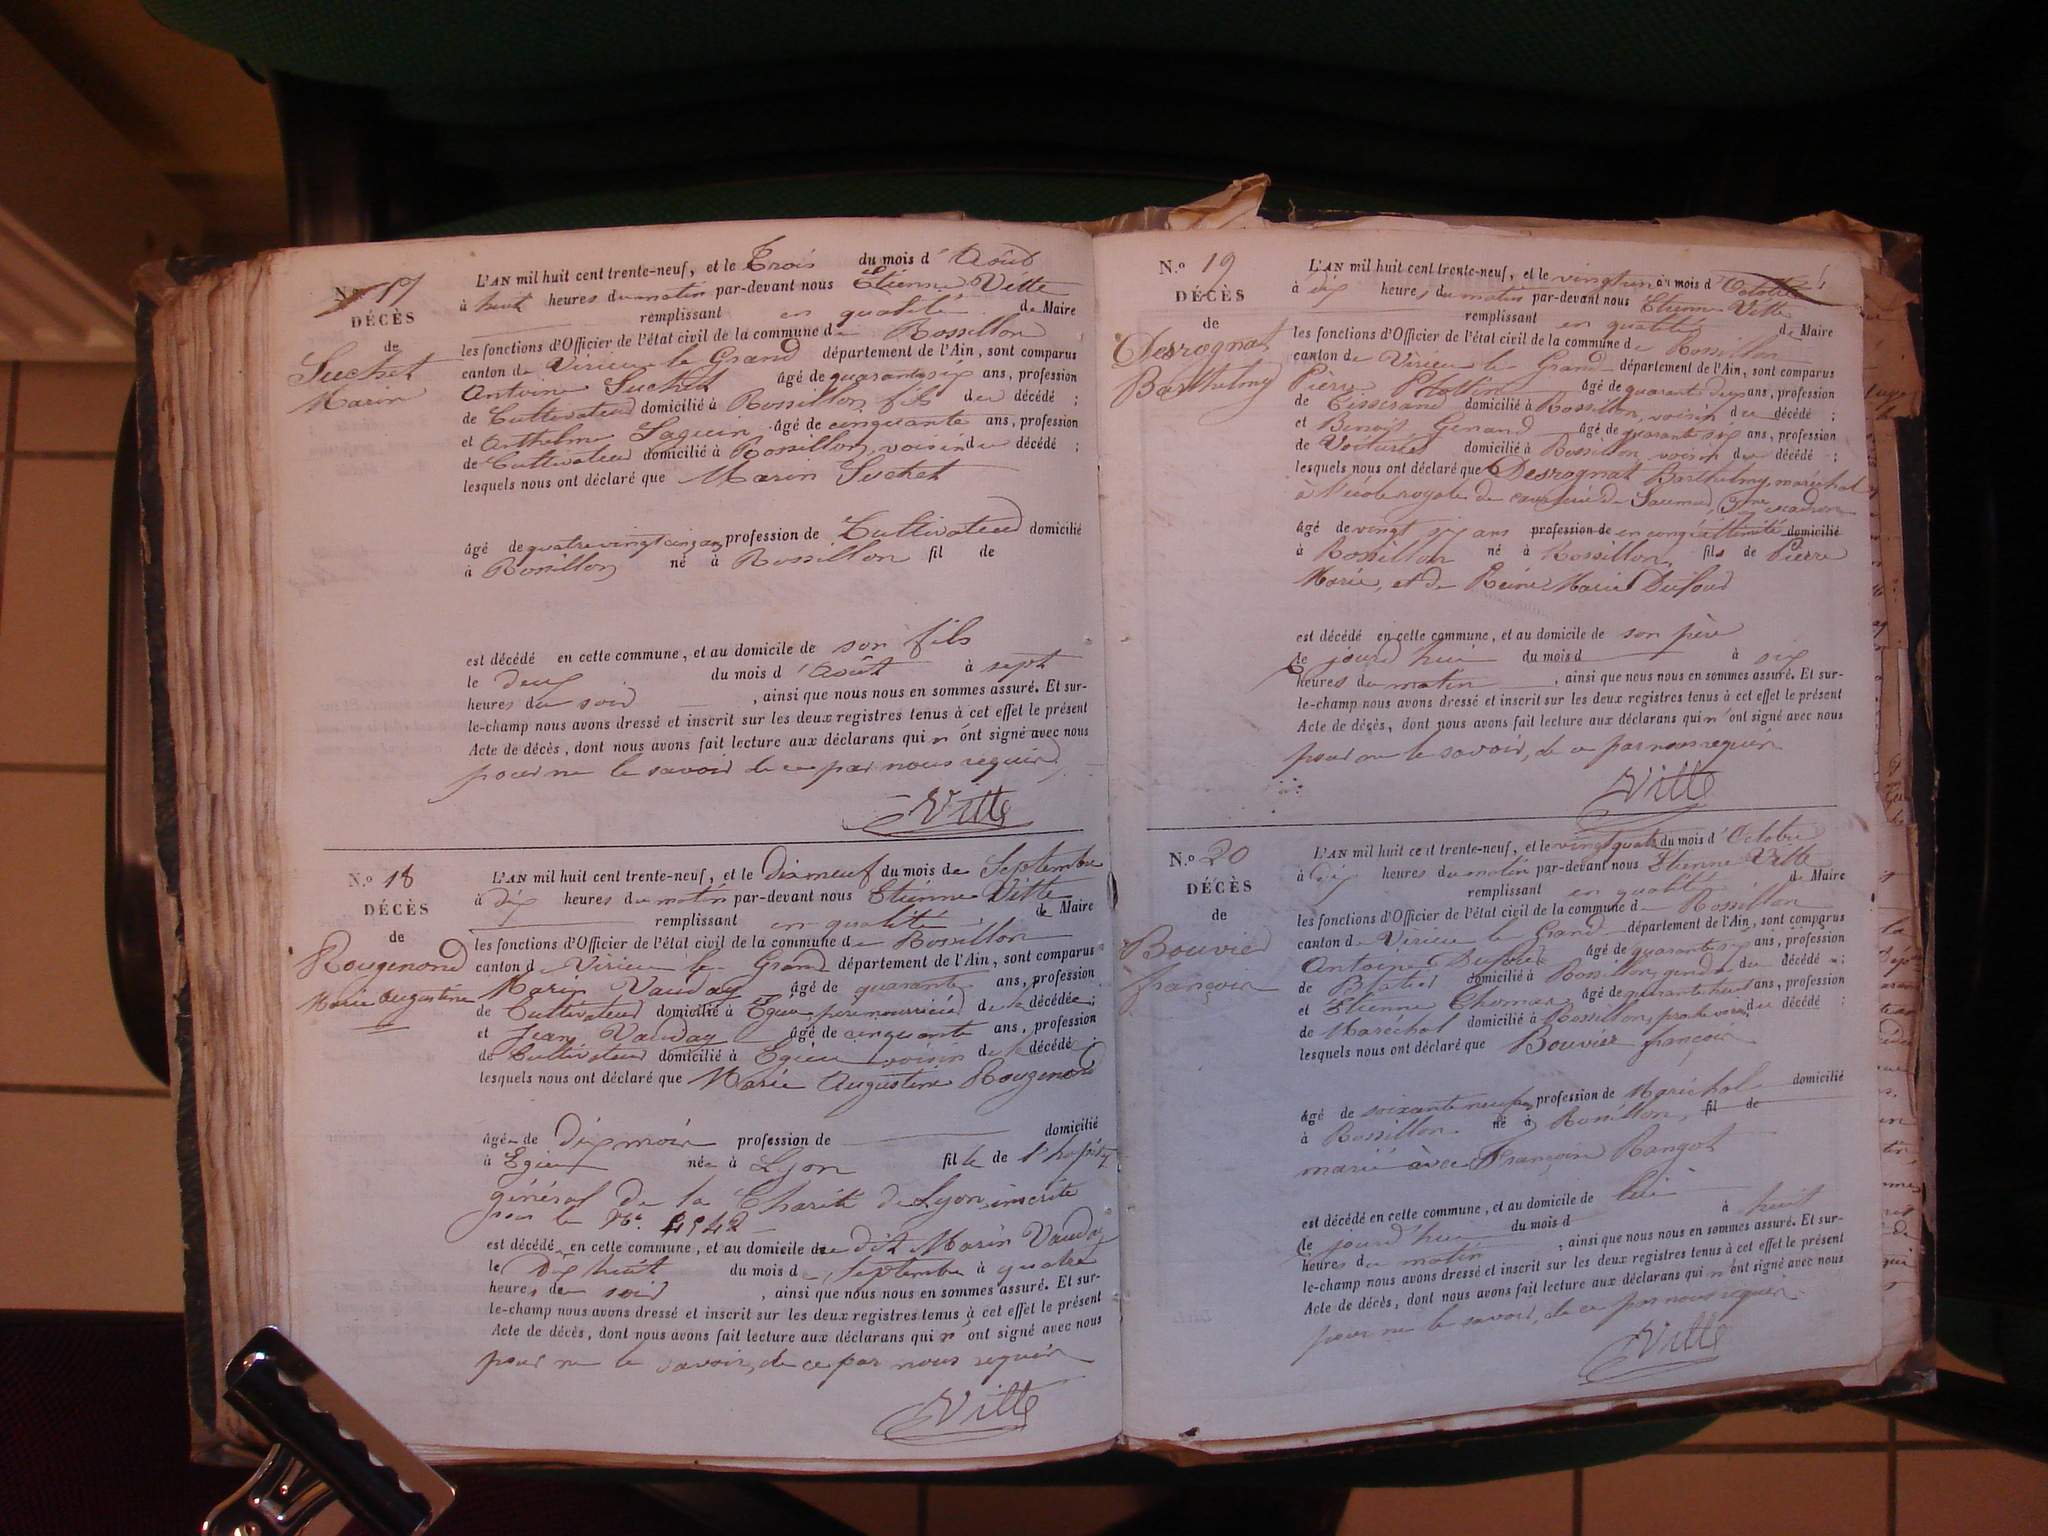 N.o 17
DÉCÈS
de
Suchet
Marin
L'AN mil huit cent trente-neuf, et le Trois du mois d'Août
à huit heures du matin par-devant nous Etienne Vitte
remplissant en qualité de Maire
les fonctions d'Officier de l'état civil de la commune de Rossillon
canton de Virieu le Grand département de l'Ain, sont comparus
Antoine Suchet âgé de quarante six ans, profession
de Cultivateur domicilié à Rossillon, fils du décédé ;
et Anthelme Saguin âgé de cinquante ans, profession
de Cultivateur domicilié à Rossillon, voisin du décédé ;
lesquels nous ont déclaré que Marin Suchet
âgé de quatre vingt cinq ans profession de Cultivateur domicilié
à Rossillon né à Rossillon fil de
est décédé en cette commune, et au domicile de son fils
le deux du mois d'Août à sept
heures du soir , ainsi que nous nous en sommes assuré. Et sur-
le-champ nous avons dressé et inscrit sur les deux registres tenus à cet effet le présent
Acte de décès, dont nous avons fait lecture aux déclarans qui n'ont signé avec nous
pour ne le savoir de ce par nous requis
Vitte
N.o 18
DÉCÈS
de
Rougemond
Marie Augustine
L'AN mil huit cent trente-neuf, et le Dix neuf du mois de Septembre
à dix heures du matin par-devant nous Etienne Vitte
remplissant en qualité de Maire
les fonctions d'Officier de l'état civil de la commune de Rossillon
canton de Virieu le Grand département de l'Ain, sont comparus
Marin Vauday âgé de quarante ans, profession
de Cultivateur domicilié à Egieu, père nourricier de la décédée ;
et Jean Vauday âgé de cinquante ans, profession
de Cultivateur domicilié à Egieu voisin de la décédée ;
lesquels nous ont déclaré que Marie Augustine Rougemond
âgée de dix mois profession de domicilié
à Egieu née à Lyon fille de l'hopital
général de la Charité de Lyon, inscrite
sous le No. 4542
est décédé en cette commune, et au domicile de dit Marin Vauday
le Dix huit du mois de Septembre à quatre
heures du soir , ainsi que nous nous en sommes assuré. Et sur-
le-champ nous avons dressé et inscrit sur les deux registres tenus à cet effet le présent
Acte de décès, dont nous avons fait lecture aux déclarans qui n'ont signé avec nous
pour ne le savoir, de ce par nous requis
Vitte
N.o 19
DÉCÈS
de
Desrognat
Barthelmy
L'AN mil huit cent trente-neuf, et le vingt un du mois d'Octobre
à dix heures du matin par-devant nous Etienne Vitte
remplissant en qualité de Maire
les fonctions d'Officier de l'état civil de la commune de Rossillon
canton de Virieu le Grand département de l'Ain, sont comparus
Pièrre Prottin âgé de quarante deux ans, profession
de Tisserand domicilié à Rossillon, voisin du décédé ;
et Benoit Genand âgé de quarante six ans, profession
de Voiturier domicilié à Rossillon, voisin du décédé ;
lesquels nous ont déclaré que Desrognat Barthelmy, maréchal
à l'école royale de cavalerie de Saumur, escadron
âgé de vingt six ans profession de en congé domicilié
à Rossillon né à Rossillon, fils de Pièrre
Marie, et de Reine Marie Dufour
est décédé en cette commune, et au domicile de son père
le jourd'hui du mois d à six
heures du matin , ainsi que nous nous en sommes assuré. Et sur-
le-champ nous avons dressé et inscrit sur les deux registres tenus à cet effet le présent
Acte de décès, dont nous avons fait lecture aux déclarans qui n'ont signé avec nous
pour ne le savoir, de ce par nous requis
Vitte
N.o 20
DÉCÈS
de
Bouvier
françois
L'AN mil huit cent trente-neuf, et le vingt quatre du mois d'Octobre
à dix heures du matin par-devant nous Etienne Vitte
remplissant en qualité de Maire
les fonctions d'Officier de l'état civil de la commune de Rossillon
canton de Virieu le Grand département de l'Ain, sont comparus
Antoine Dufour âgé de quarante six ans, profession
de domicilié à Rossillon, gendre du décédé ;
et Etienne Chomer âgé de quarante huit ans, profession
de Maréchal domicilié à Rossillon, proche voisin du décédé ;
lesquels nous ont déclaré que Bouvier françois
âgé de soixante neuf ans profession de Maréchal domicilié
à Rossillon né à Rossillon, fil de
marié avec Françoise Rangot
est décédé en cette commune, et au domicile de lui
le jourd'hui du mois d à huit
heures du matin , ainsi que nous nous en sommes assuré. Et sur-
le-champ nous avons dressé et inscrit sur les deux registres tenus à cet effet le présent
Acte de décès, dont nous avons fait lecture aux déclarans qui n'ont signé avec nous
pour ne le savoir, de ce par nous requis
Vitte